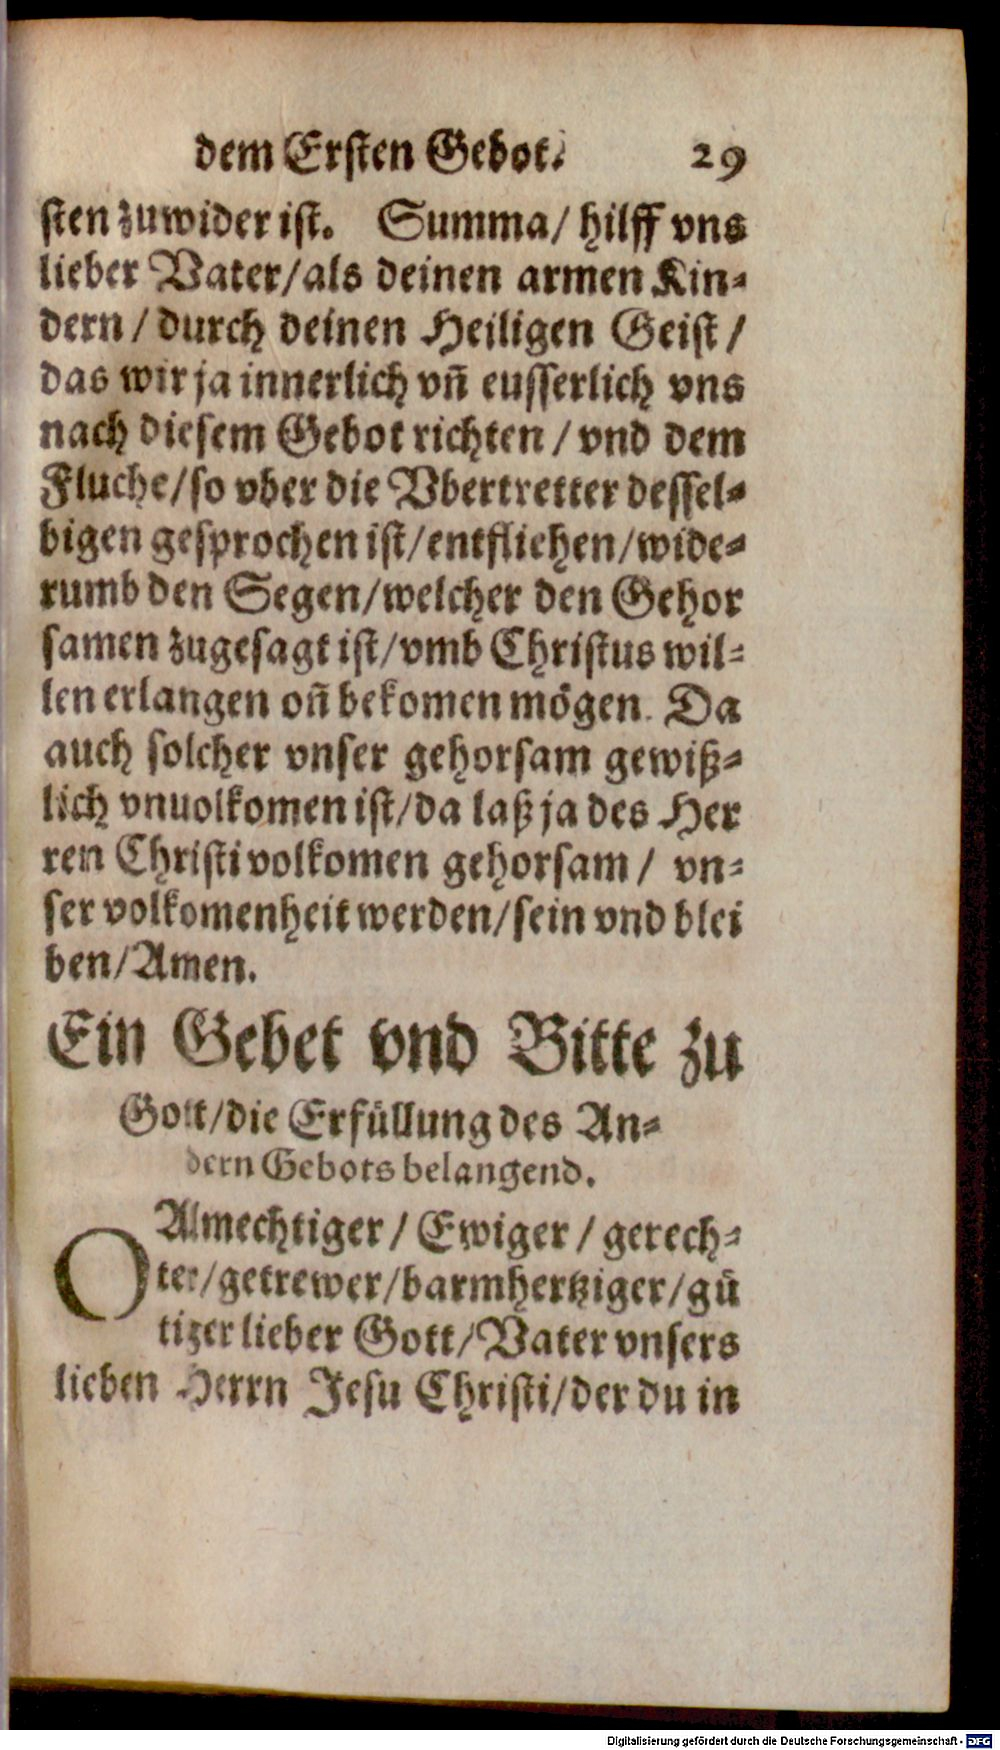 dem Ersten Gebot. 29
sten zuwider ist. Summa/ hilff vns
lieber Vater/als deinen armen Kin⸗
dern/durch deinen Heiligen Geist/
das wir ja innerlich vñ eusserlich vns
nach diesem Gebot richten/vnd dem
Fluche/so vber die Vbertretter dessel⸗
bigen gesprochen ist/entfliehen/wide⸗
rumb den Segen/welcher den Gehor
samen zugesagt ist/vmb Christus wil⸗
len erlangen vñ bekomen mögen. Da
auch solcher vnser gehorsam gewiß⸗
lich vnuolkomen ist/da laß ja des Her
ren Christi volkomen gehorsam/ vn⸗
ser volkomenheit werden/sein vnd blei
ben/Amen.
Ein Gebet vnd Bitte zu
Gott/die Erfüllung des An⸗
dern Gebots belangend.
O Almechtiger/ Ewiger/ gerech⸗
ter/getrewer/barmhertziger/gü
tiger lieber Gott/Vater vnsers
lieben Herrn Jesu Christi/der du in
Digitalisierung gefördert durch die Deutsche Forschungsgemeinschaft - DFG